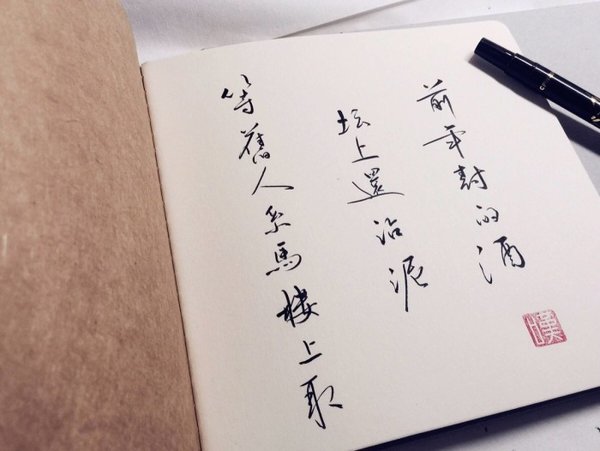 前年封的酒
坛上還沾泥
等舊人系馬樓上取